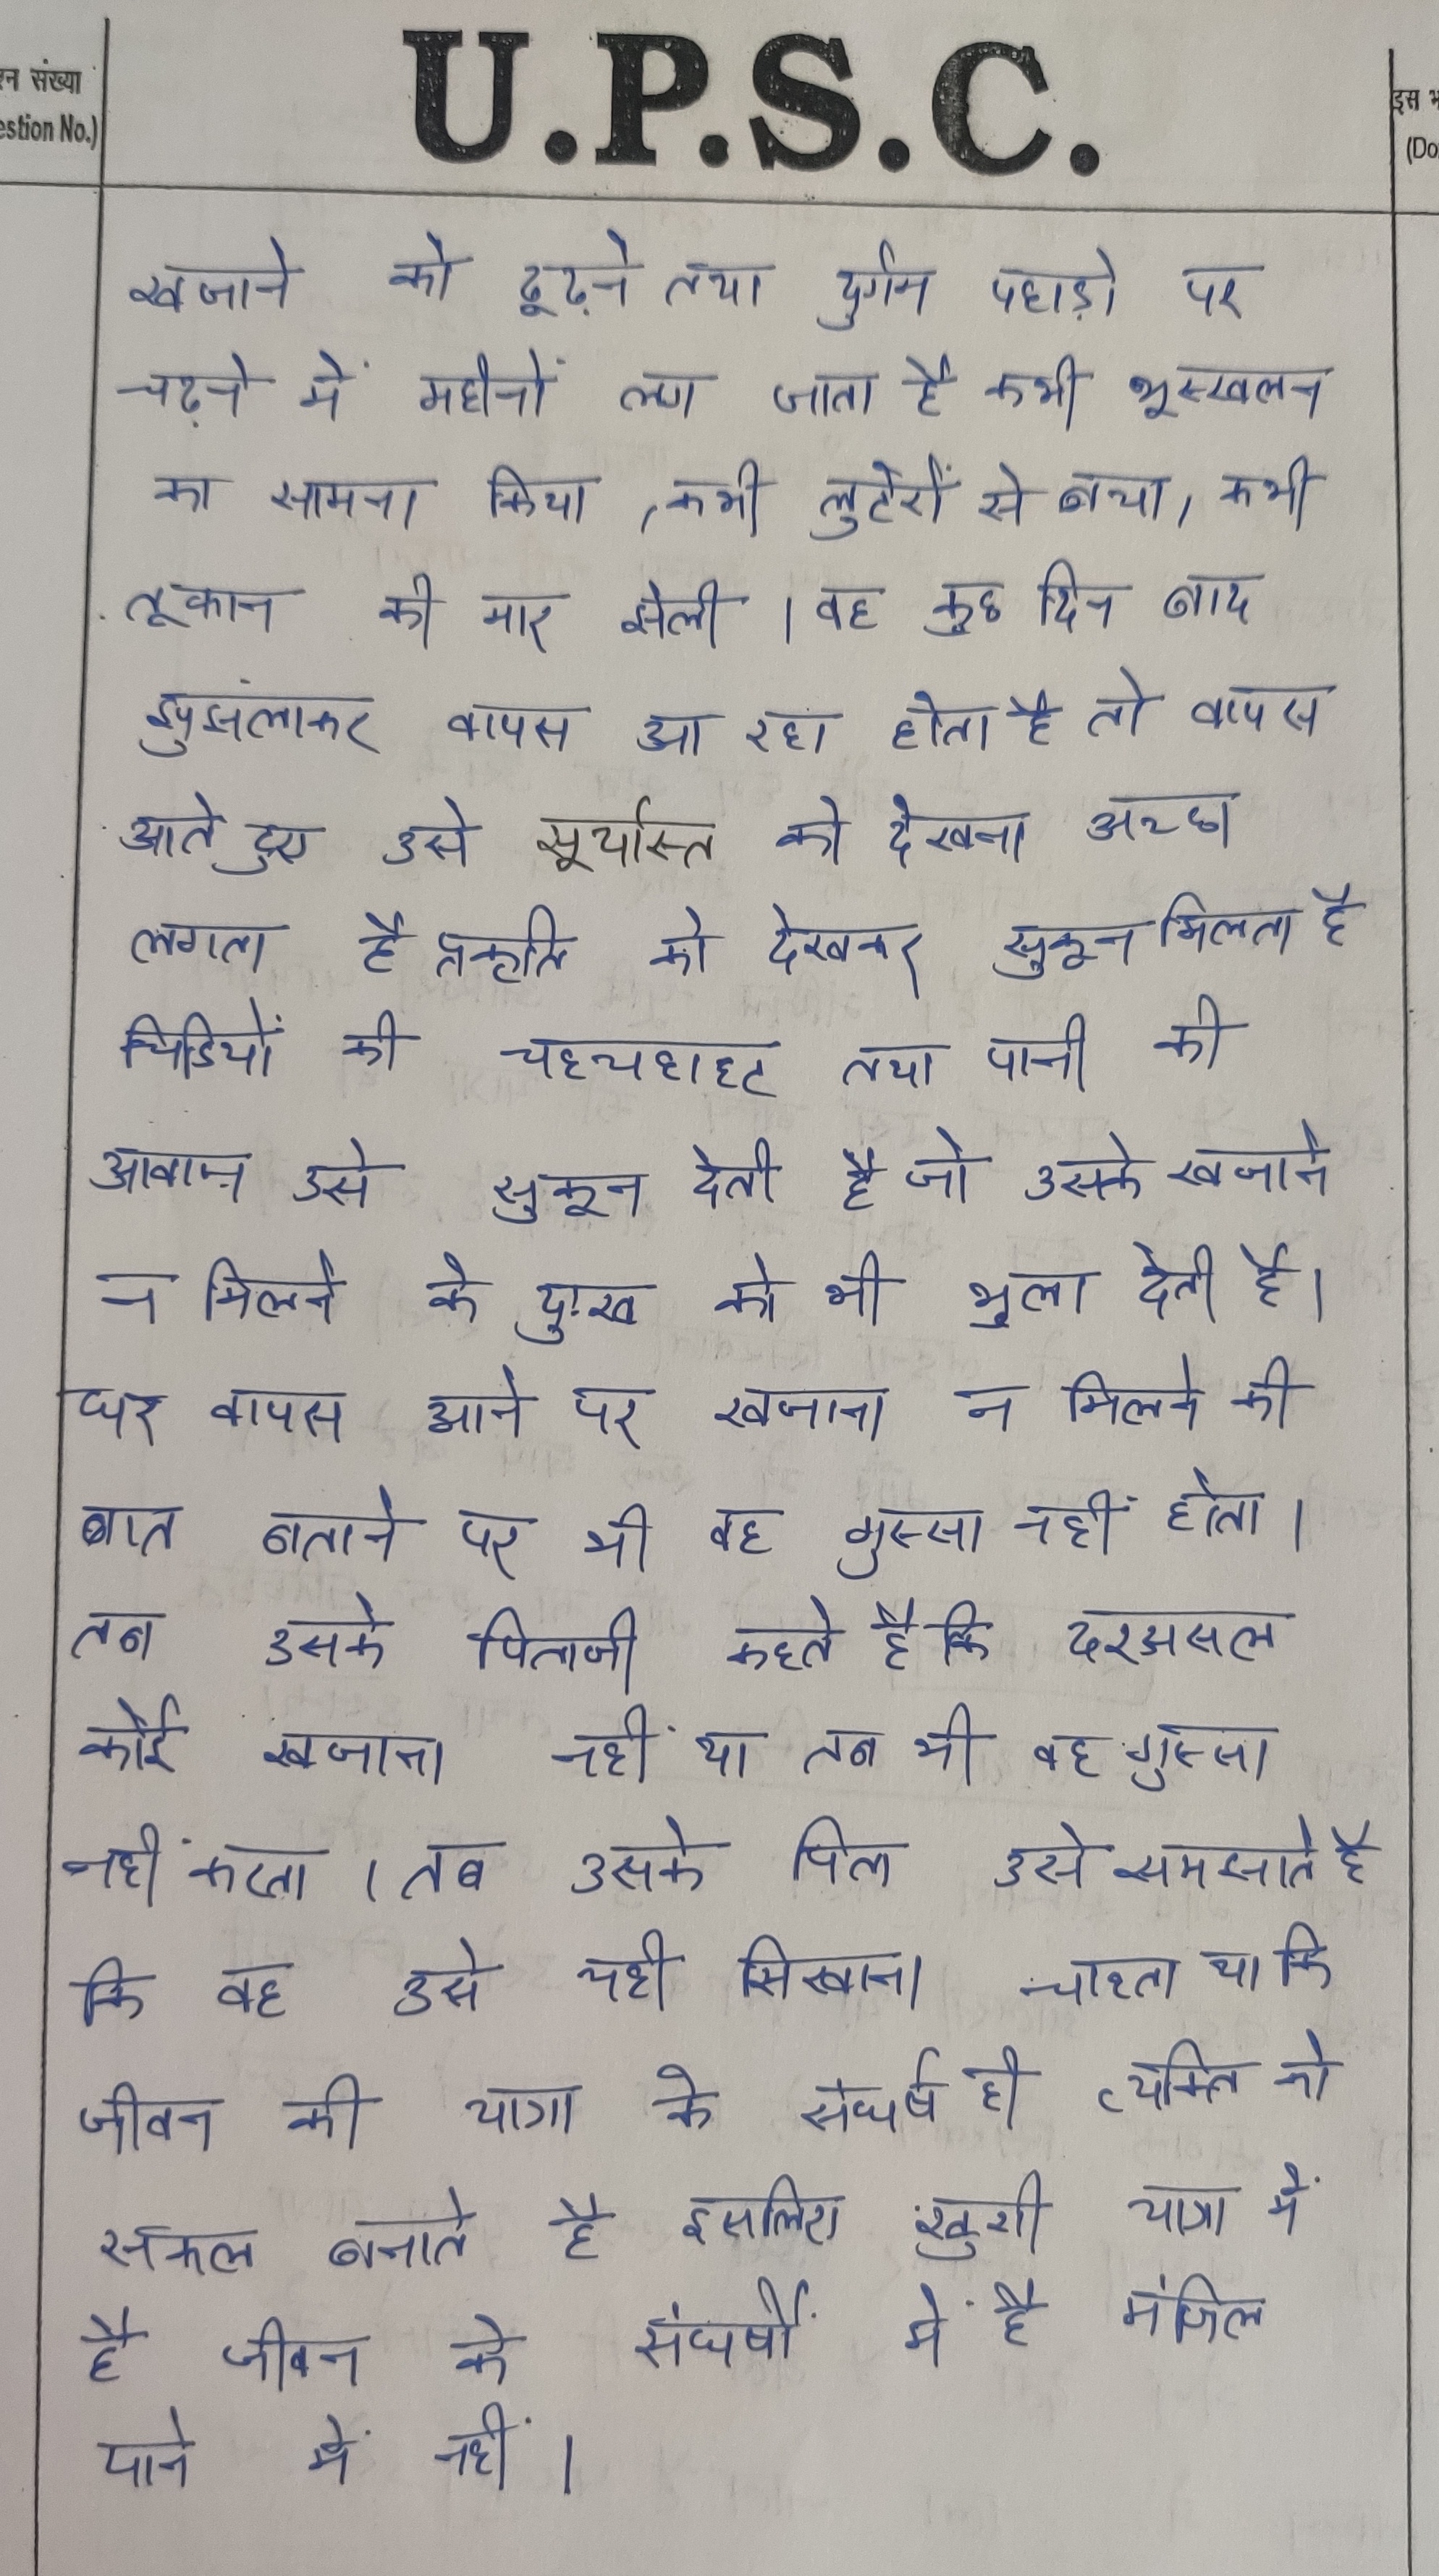 न संख्या
estion No.)
U.P.S.C.
इस भ
(Do
खजाने को ढूढ़ने तथा दुर्गम पहाड़ो पर
चढ़ने में महीनों लग जाता है कभी भूस्खलन
का सामना किया, कभी लुटेरों से बचा, कभी
तूफान की मार झेली । वह कुछ दिन बाद
झुझंलाकर वापस आ रहा होता है तो वापस
आते हुए उसे सूर्यास्त को देखना अच्छा
लगता है प्रकृति को देखकर सुकून मिलता है
चिडियों की चहचहाहट तथा पानी की
आवाज़ उसे सुकून देती है जो उसके खजाने
न मिलने के दुःख को भी भुला देती है।
घर वापस आने पर खजाना न मिलने की
बात बताने पर भी वह गुस्सा नहीं होता ।
तब उसके पिताजी कहते है कि दरअसल
कोई खजाना नहीं था तब भी वह गुस्सा
नहीं करता । तब उसके पिता उसे समझाते है
कि वह उसे यही सिखाना चाहता था कि
जीवन की यात्रा के संघर्ष ही व्यक्ति को
सफल बनाते है इसलिए खुशी यात्रा में
है जीवन के संघर्षों में है मंजिल
पाने में नहीं ।